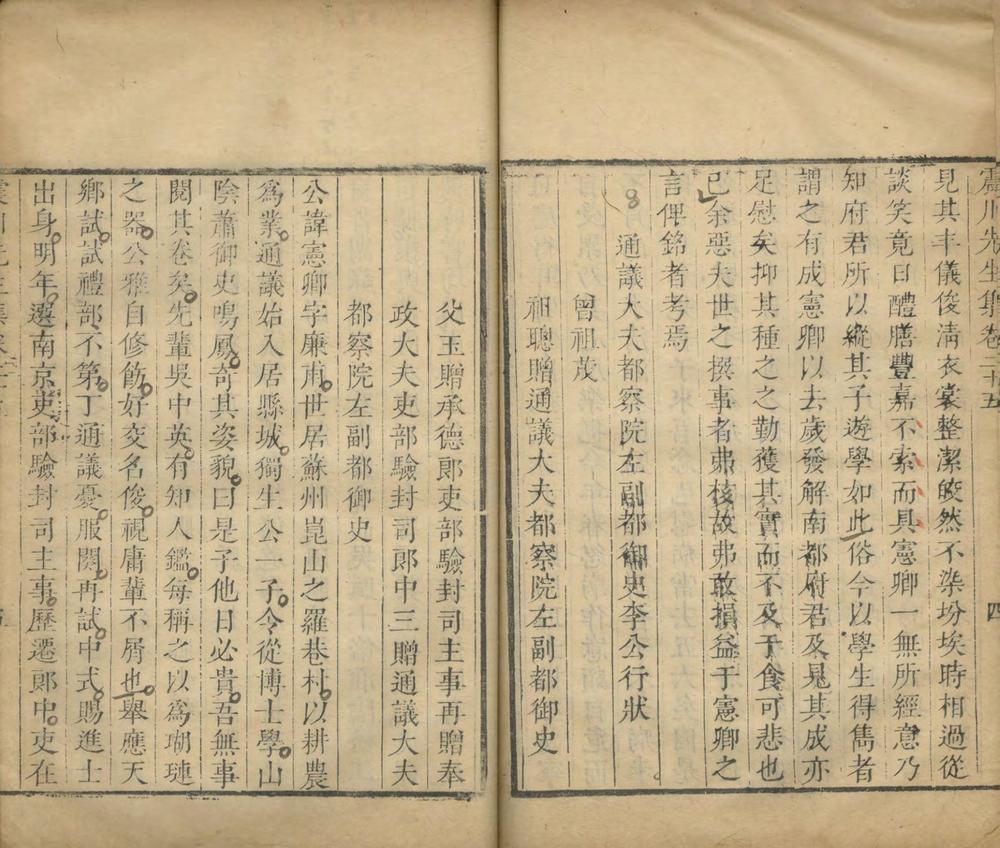 震川先生集卷二十五 四
見其丰儀俊淸衣裳整潔皎然不染坋埃時相過從
談笑竟日醴膳豐嘉不索而具憲卿一無所經意乃
知府君所以縱其子遊學如此俗今以學生得雋者
謂之有成憲卿以去歲發解南都府君及見其成亦
足慰矣抑其種之之勤獲其實而不及于食可悲也
已余惡夫世之撰事者弗核故弗敢損益于憲卿之
言俾銘者考焉
8 通議大夫都察院左副都御史李公行狀
曾祖茂
祖聰贈通議大夫都察院左副都御史
父玉贈承德郎吏部驗封司主事再贈奉
政大夫吏部驗封司郎中三贈通議大夫
都察院左副都御史
公諱憲卿字廉甫世居蘇州崑山之羅巷村以耕農
爲業通議始入居縣城獨生公一子令從博士學山
陰蕭御史鳴鳳奇其姿貌曰是子他日必貴吾無事
閱其卷矣先輩吳中英有知人鑑每稱之以爲瑚璉
之器公雅自修飭好交名俊視庸輩不屑也舉應天
鄉試試禮部不第丁通議憂服闋再試中式賜進士
出身明年選南京吏部驗封司主事歷遷郎中吏在